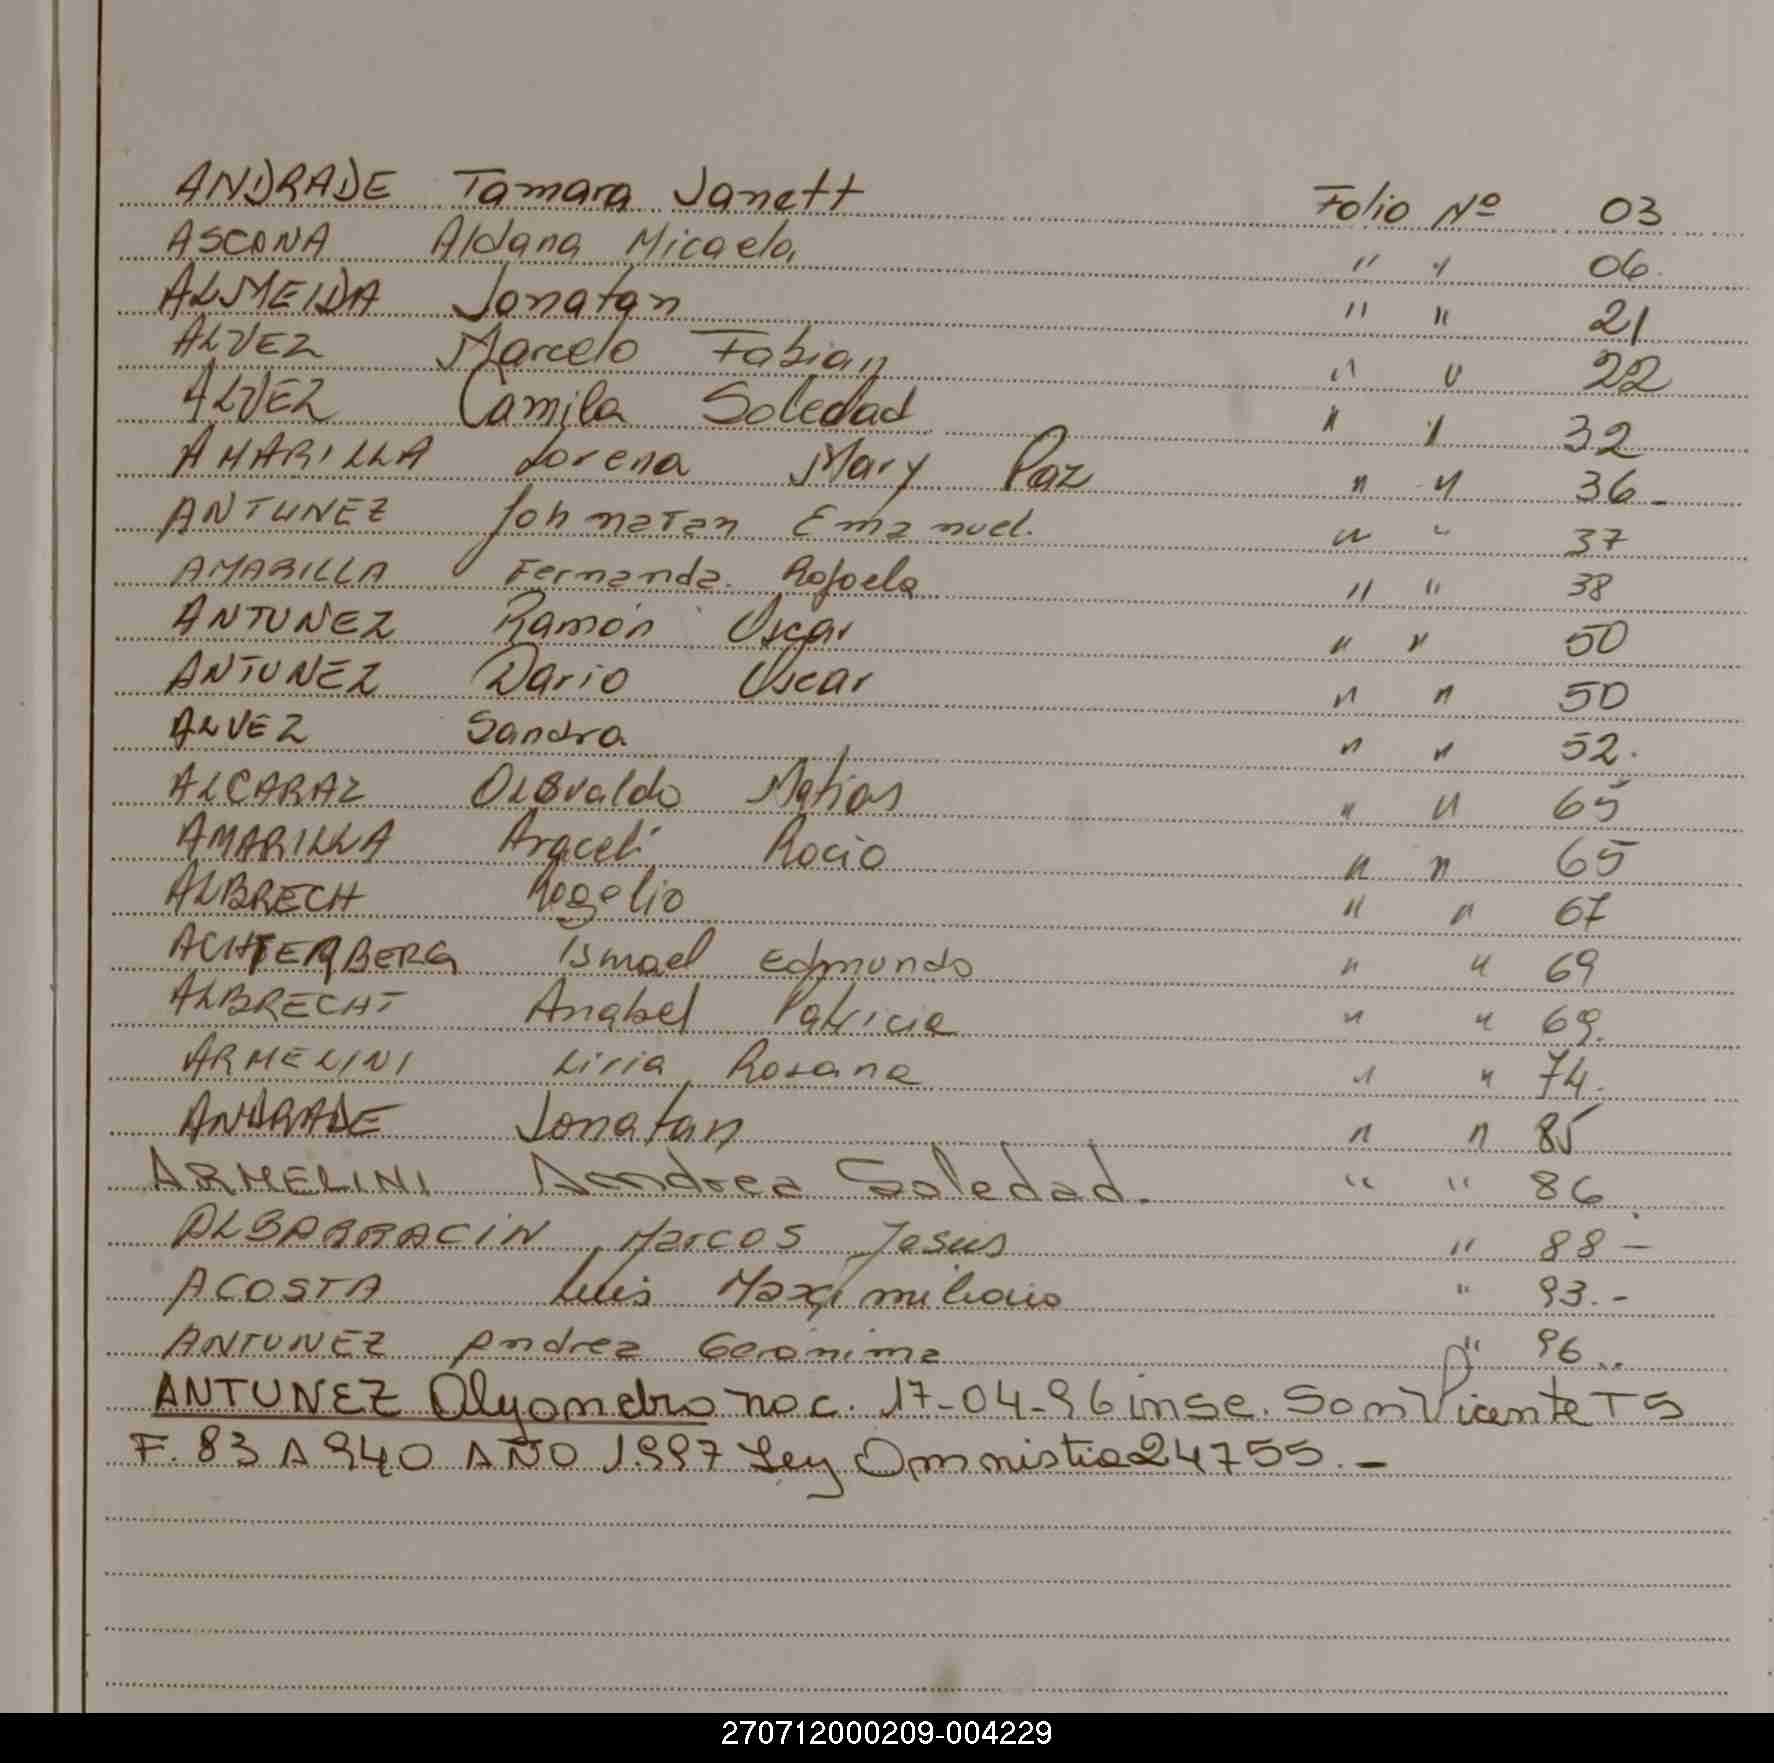 ANDRADE Tamara Janett Folio Nº 03
ASCONA Aldana Micaela, " " 06.
ALMEIDA Jonatan " " 21
ALVEZ Marcelo Fabian " " 22
ALVEZ Camila Soledad " " 32
AMARILLA Lorena Mary Paz " " 36-
ANTUNEZ Johnatan Emanuel. " " 37
AMARILLA Fernanda Rafaela " " 38
ANTUNEZ Ramón Oscar " " 50
ANTUNEZ Dario Oscar " " 50
ALVEZ Sandra " " 52.
ALCARAZ Matias " " 65
AMARILLA Araceli Rocio " " 65
ALBRECH Rogelio " " 67
ACHTERBERG Ismael Edmundo " " 69
ALBRECHT Anabel Patricia " " 69.
ARMELINI Liria Rosana " " 74.
ANDRADE Jonatan " " 85
ARMELINI Andrea Soledad. " " 86
ALBARRACIN Marcos Jesus " 88-
ACOSTA Luis " 93.-
ANTUNEZ Andrea Geronima " 96..
ANTUNEZ Alejandro nac. 17-04-96 insc. San Vicente T5
F. 83 A 940 AÑO 1.997 Ley Amnistia 24755.-
270712000209-004229